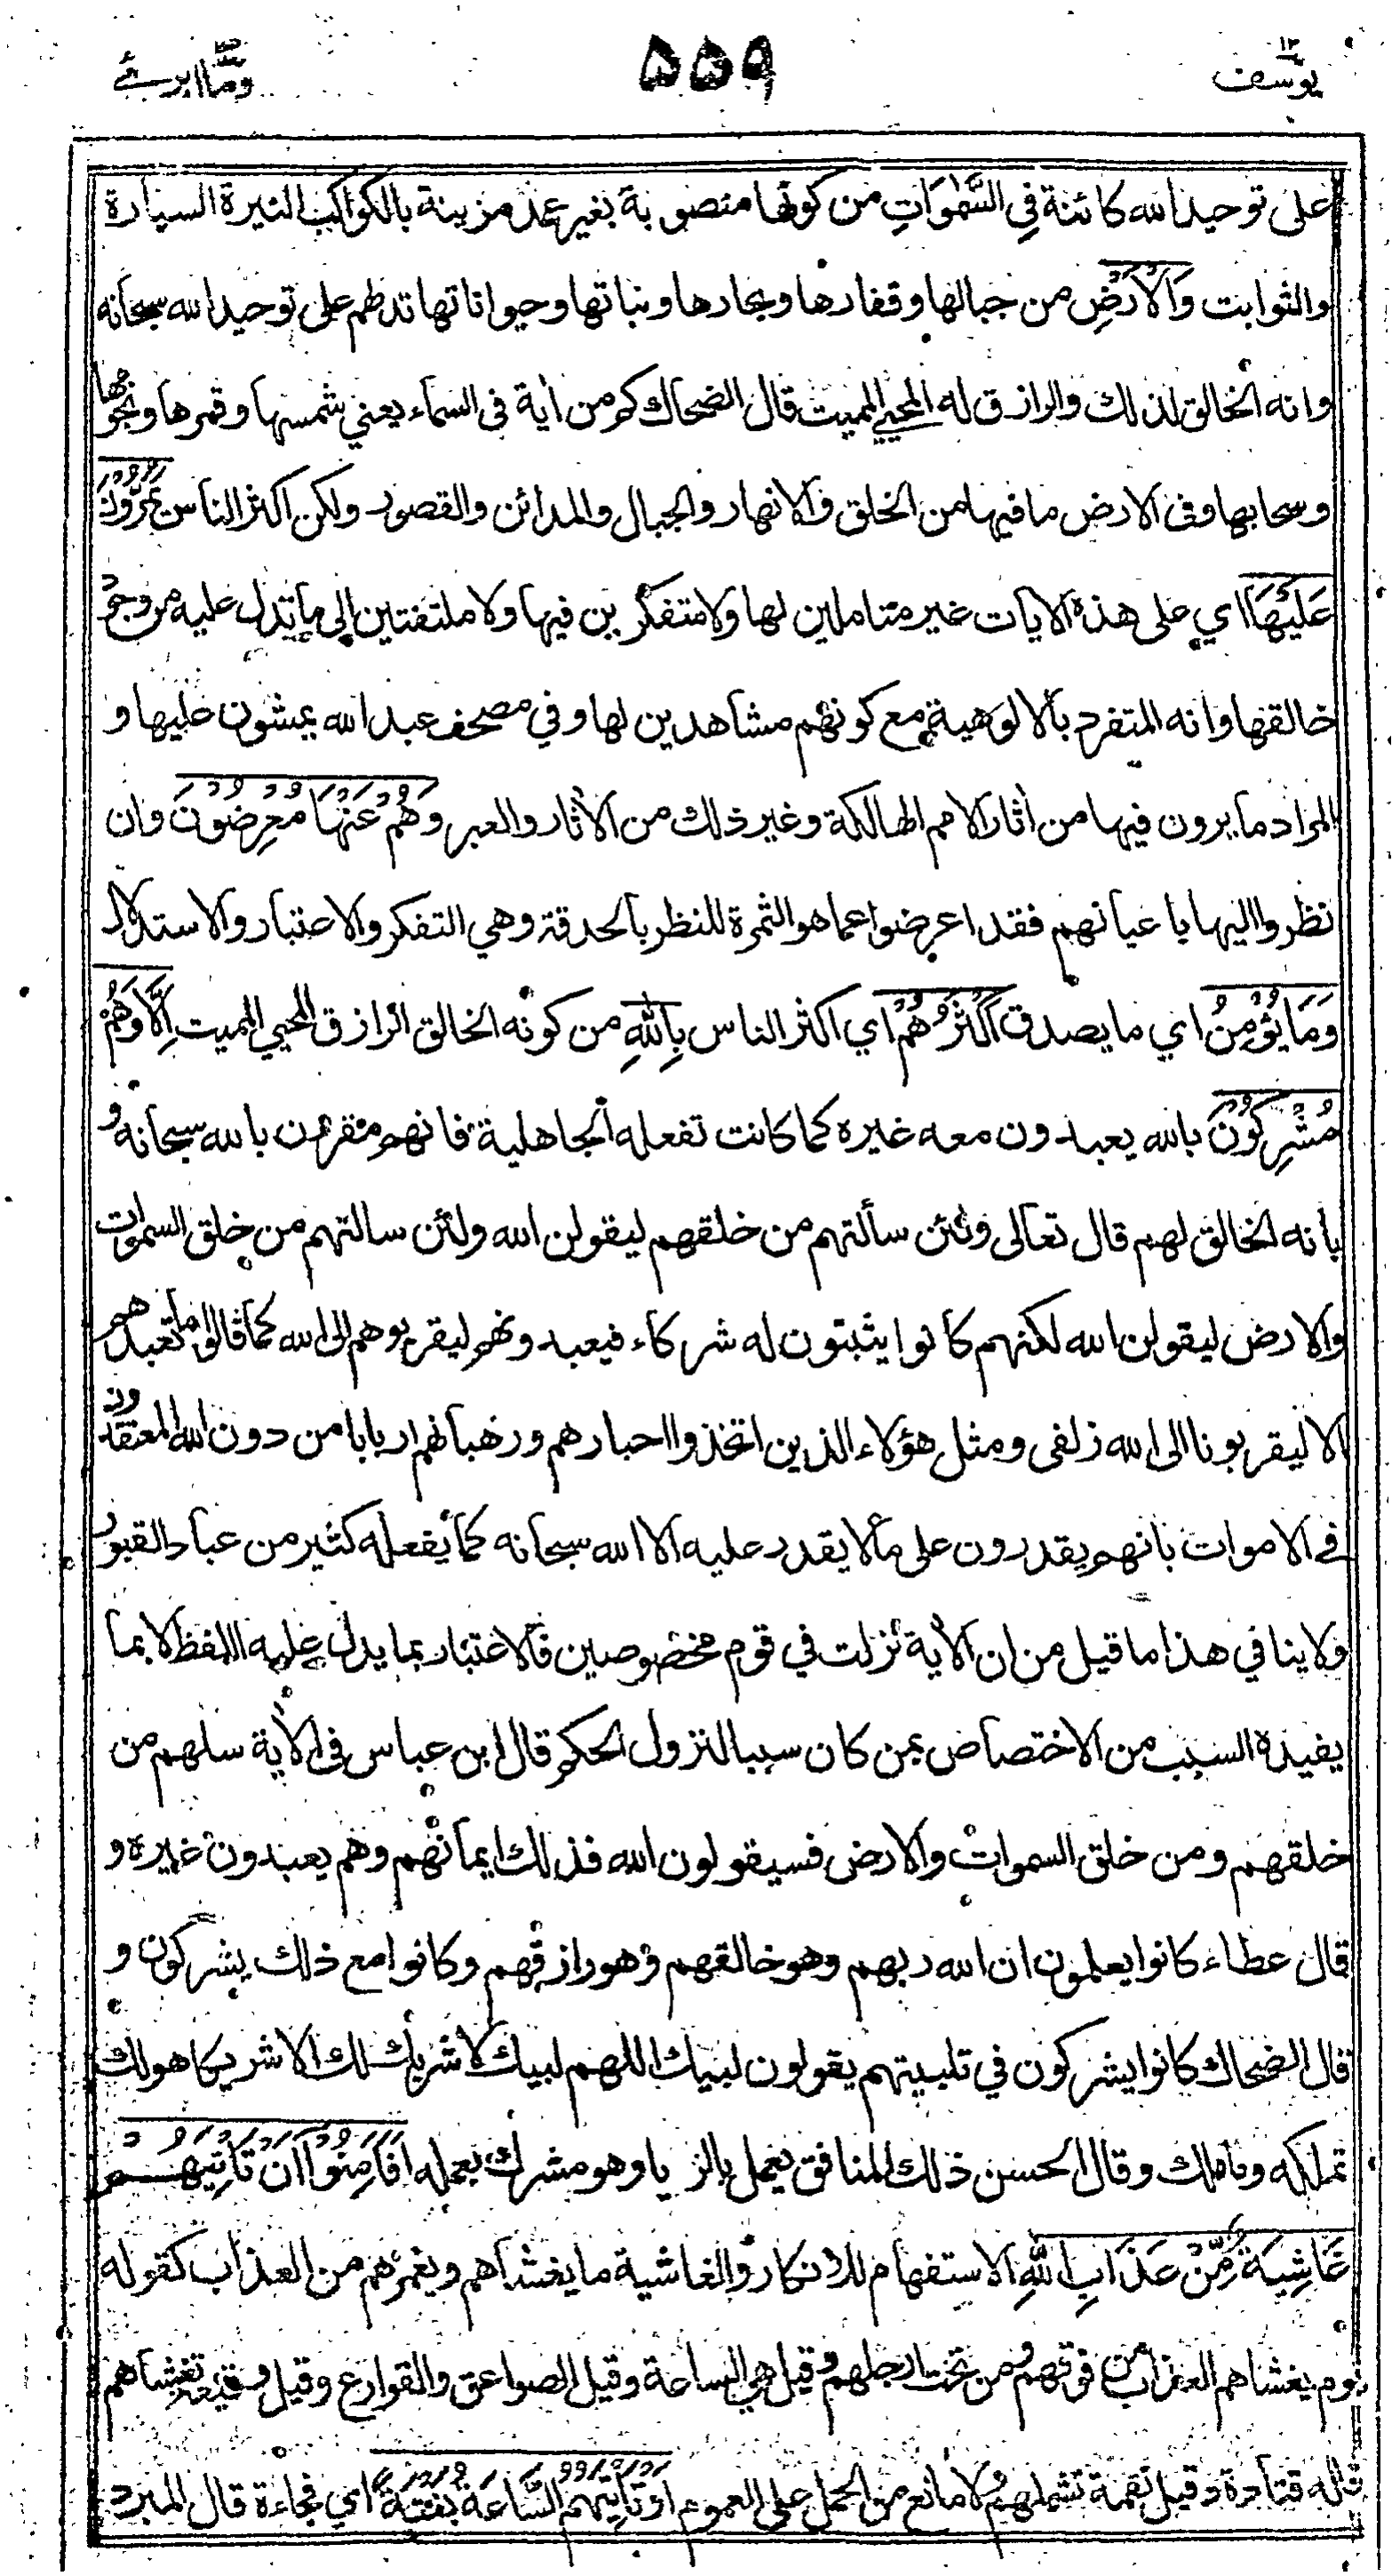 يوسف ١٢
٥٥٩
وما ابرئ
على توحيد الله كائنة فِي السَّمٰوَاتِ من كونها منصوبة بغير عمد مزينة بالكواكب النيرة السيارة
والثوابت وَالْاَرْضِ من جبالها وقفارها وبحارها ونباتها وحيواناتها تدلهم على توحيد الله سبحانه
وانه الخالق لذلك والرازق له المحيي المميت قال الضحاك كم من أية فى السماء يعني شمسها وقمرها ونجومها
وسحابها وفى الارض ما فيها من الخلق والانهار والجبال والمدائن والقصور ولكن اكثر الناس يَمُرُّوْنَ
عَلَيْهَا اي على هذه الأيات غير متاملين لها ولا متفكرين فيها ولا ملتفتين إلى ما تدل عليه من وجود
خالقها وانه المتفرد بالالوهية مع كونهم مشاهدين لها وفي مصحف عبد الله يمشون عليها و
المراد ما يرون فيها من أثار الامم الهالكة وغير ذلك من الأثار والعبر وَهُمْ عَنْهَا مُعْرِضُوْنَ وان
نظروا اليها باعيانهم فقد اعرضوا عما هو الثمرة للنظر بالحدقة وهي التفكر والاعتبار والاستدلال
وَمَا يُؤْمِنُ اي ما يصدق اَكْثَرُهُمْ اي اكثر الناس بِاللهِ من كونه الخالق الرازق المحيي المميت اِلَّا وَهُمْ
مُشْرِكُوْنَ بالله يعبدون معه غيره كما كانت تفعله الجاهلية فانهم مقرون بالله سبحانه و
بانه الخالق لهم قال تعالى ولئن سألتهم من خلقهم ليقولن الله ولئن سالتهم من خلق السموات
والارض ليقولن الله لكنهم كانوا يثبتون له شركاء فيعبدونهم ليقربوهم إلى الله كما قالوا ما نعبدهم
الا ليقربونا الى الله زلفى ومثل هؤلاء الذين اتخذوا احبارهم ورهبانهم اربابا من دون الله المعتقدون
في الاموات بانهم يقدرون على ما لا يقدر عليه الا الله سبحانه كما يفعله كثير من عباد القبور
ولا ينافي هذا ما قيل من ان الأية نزلت في قوم مخصوصين فالاعتبار بما يدل عليه اللفظ لا بما
يفيده السبب من الاختصاص بمن كان سببا لنزول الحكم قال ابن عباس فى الأية سلهم من
خلقهم ومن خلق السموات والارض فسيقولون الله فذلك ايمانهم وهم يعبدون غيره و
قال عطاء كانوا يعلمون ان الله ربهم وهو خالقهم وهو رازقهم وكانوا مع ذلك يشركون و
قال الضحاك كانوا يشركون في تلبيتهم يقولون لبيك اللهم لبيك لا شريك لك الا شريكا هو لك
تملكه وما ملك وقال الحسن ذلك المنافق يعمل بالريا وهو مشرك بعمله اَفَاَمِنُوْا اَنْ تَاْتِيَهُمْ
غَاشِيَةٌ مِّنْ عَذَابِ اللهِ الاستفهام للانكار والغاشية ما يغشاهم ويغمرهم من العذاب كقوله
يوم يغشاهم العذاب من فوقهم ومن تحت ارجلهم وقيل هي الساعة وقيل الصواعق والقوارع وقيل وقيعة تغشاهم
قاله قتادة وقيل نقمة تشملهم ولا مانع من الحمل على العموم اَوْ تَاْتِيَهُمُ السَّاعَةُ بَغْتَةً اي فجاءة قال المبرد